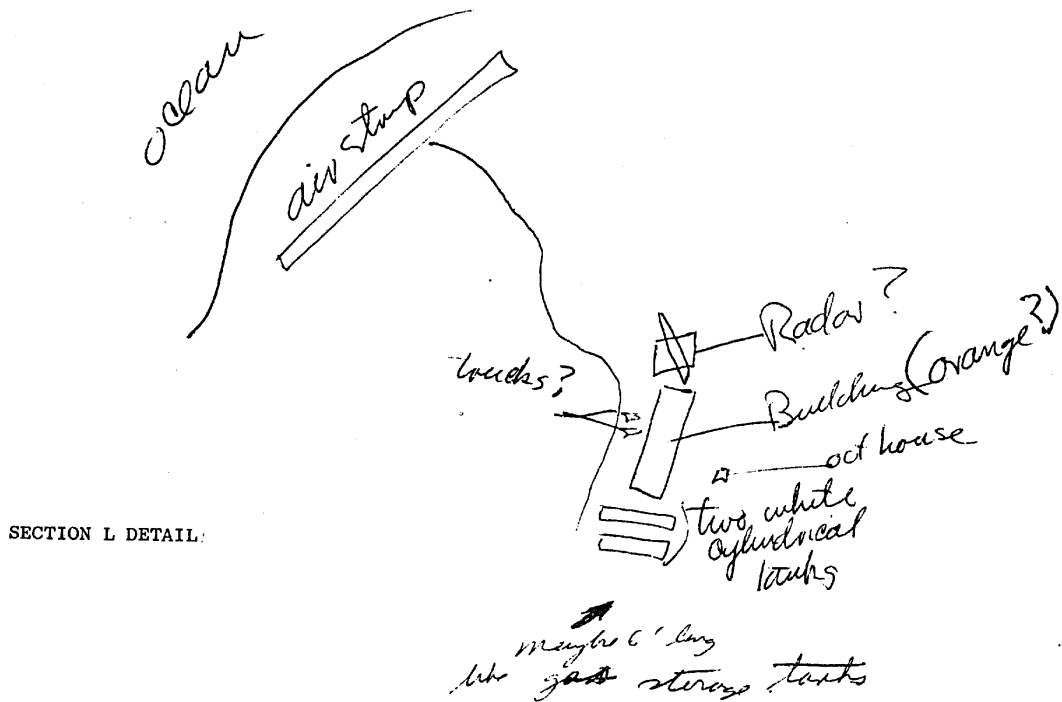 ocean
air strip
Radar?
trucks?
Building (orange?)
out house
two white
cylindrical
tanks
SECTION L DETAIL:
maybe 6' long
like gas storage tanks